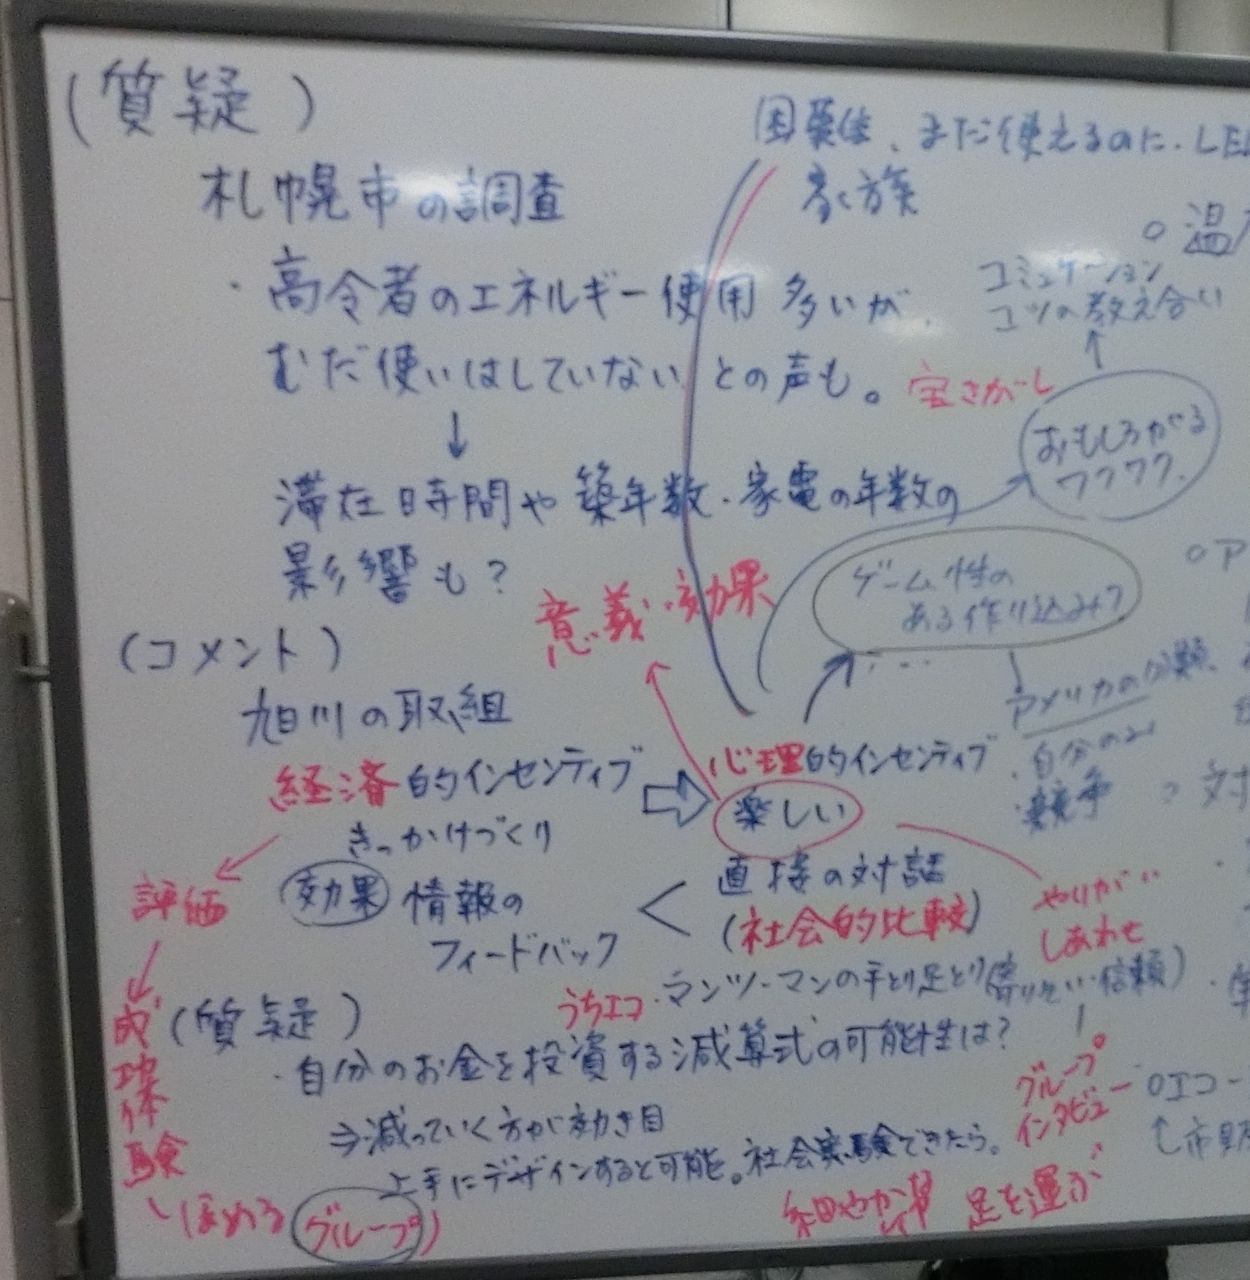 (質疑)
札幌市の調査
・高令者のエネルギー使用多いが、
むだ使いはしていないとの声も。
↓
滞在時間や築年数・家電の年数の
影響も?
(コメント)
旭川の取組
経済的インセンティブ
きっかけづくり
効果 情報の
フィードバック
評価
成功体験
ほめる
グループ)
(質疑)
・自分のお金を投資する減算式の可能性は?
⇒減っていく方が効き目
上手にデザインすると可能。社会実験できたら。
意義・効果
心理的インセンティブ
楽しい
直接の対話
(社会的比較)
うちエコ・マンツーマンの手とり足とり(寄りそい・信頼)
やりがい
しあわせ
グループ
インタビュー
細やかな 足を運ぶ
、まだ使えるのに・LE
家族
○温
コミュケーション
コツの教え合い
宝さがし
おもしろがる
ワクワク.
ゲーム性の
ある作り込み?
アメリカの分類
・自分の
・競争
対
○ア
○エコー
↑市販